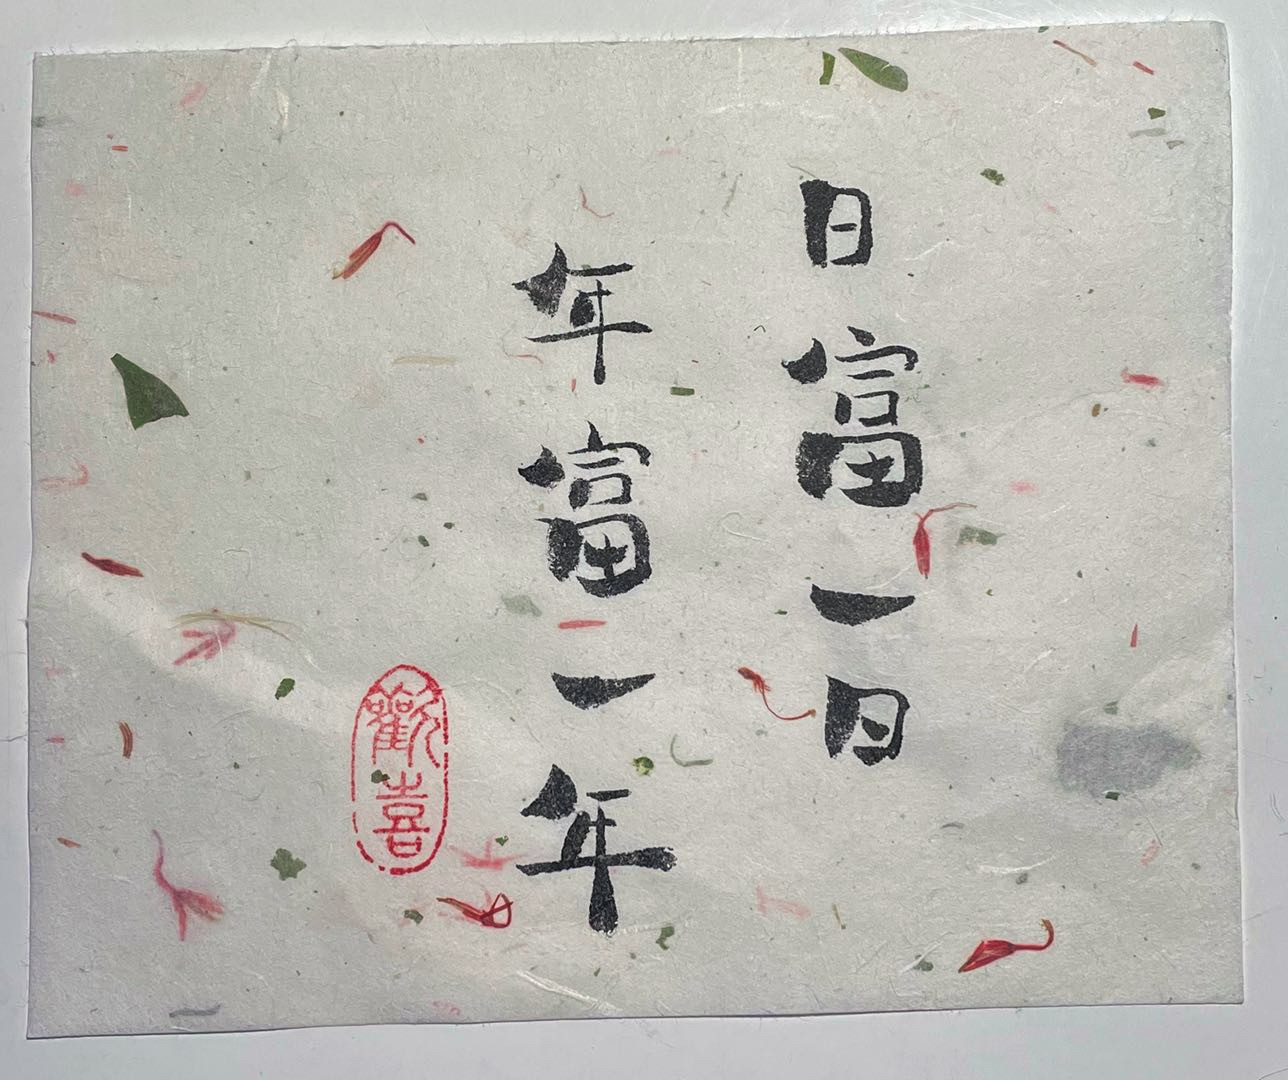 日富一日
年富一年
歡喜